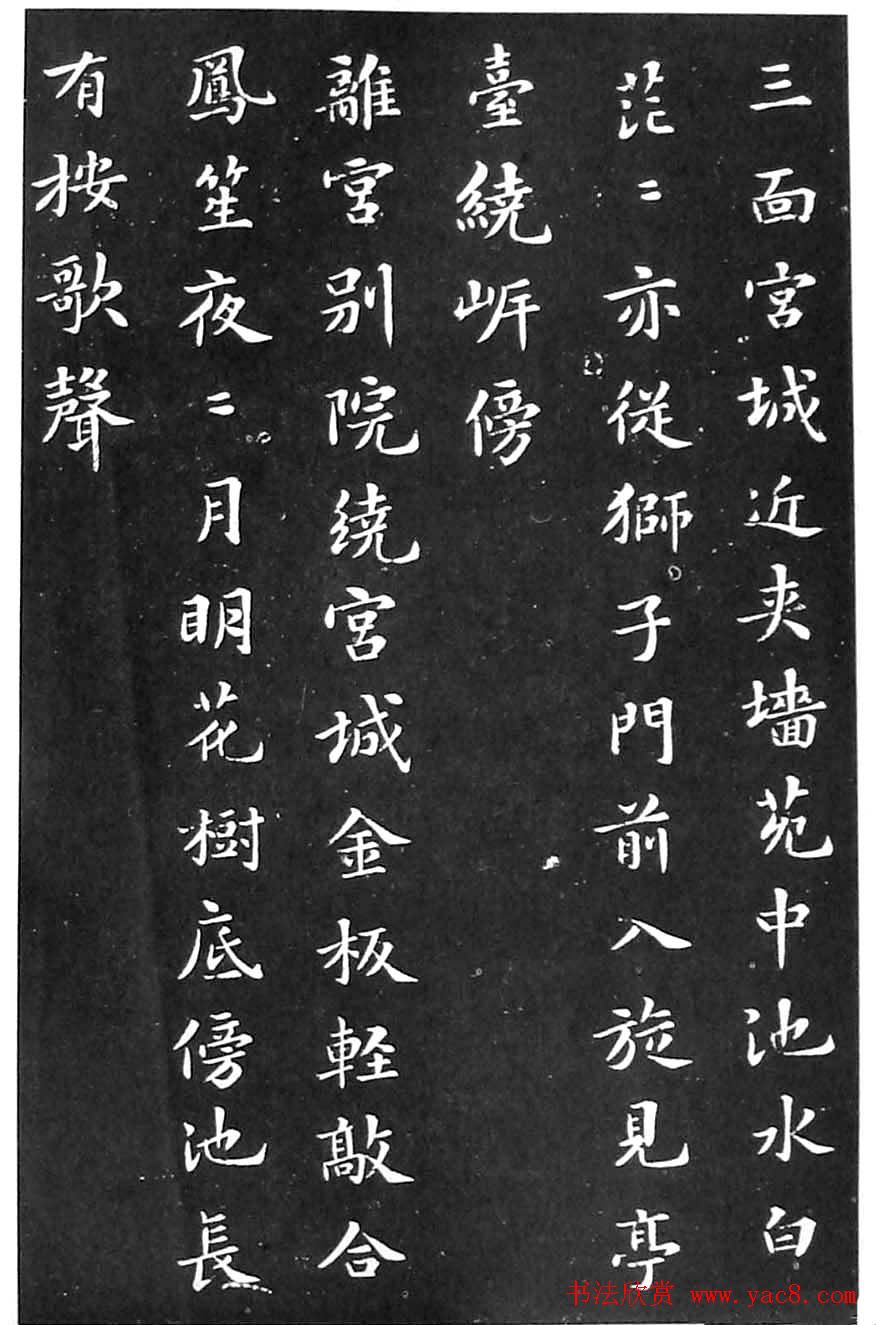 三面宮城近夾墻苑中池水白
茫〻亦從獅子門前入旋見亭
臺繞岍傍
離宮别院繞宮城金板軽敲合
鳳笙夜〻月明花樹底傍池長
有按歌聲
书法欣赏 www.yac8.com